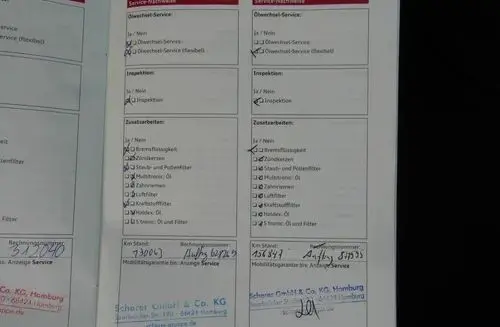 Service-Nachweise
Ölwechsel-Service:
Ja / Nein
Ölwechsel-Service:
Ölwechsel-Service (flexibel)
Inspektion:
Ja / Nein
Inspektion
Zusatzarbeiten:
Ja / Nein
Bremsflüssigkeit
Zündkerzen
Staub- und Pollenfilter
Multitronic: Öl
Zahnriemen
Luftfilter
Kraftstofffilter
Haldex: Öl
S tronic: Öl und Filter
Km Stand: Rechnungsnummer:
Mobilitätsgarantie bis: Anzeige Service
Scherer GmbH & Co. KG
66424 Homburg
Service-Nachweise
Ölwechsel-Service:
Ja / Nein
Ölwechsel-Service:
Ölwechsel-Service (flexibel)
Inspektion:
Ja / Nein
Inspektion
Zusatzarbeiten:
Ja / Nein
Bremsflüssigkeit
Zündkerzen
Staub- und Pollenfilter
Multitronic: Öl
Zahnriemen
Luftfilter
Kraftstofffilter
Haldex: Öl
S tronic: Öl und Filter
Km Stand: Rechnungsnummer:
156847
Mobilitätsgarantie bis: Anzeige Service
Scherer GmbH & Co. KG
66424 Homburg
(flexibel)
Filter
Rechnungsnummer:
312040
Anzeige Service
Co. KG, Homburg
66424 Homburg